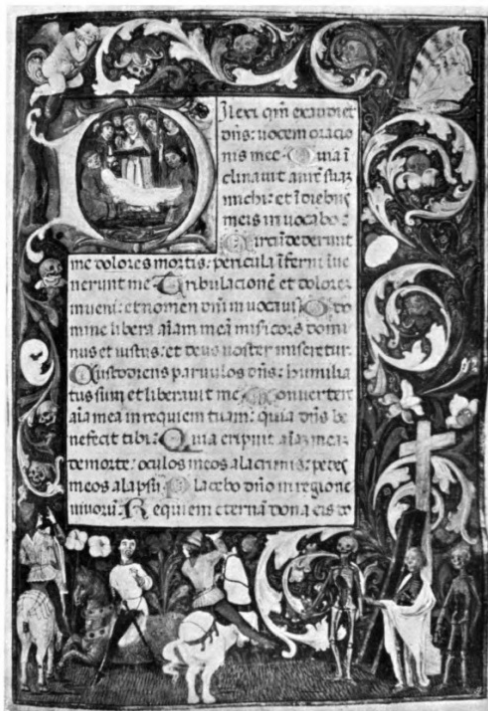 Dilexi qm̄ exaudiet
dn̄s: uocem oracio
nis mee. Quia ī
clinauit aurē suaz
michi: et ī diebus
meis inuocabo:
Circūdederunt
me dolores mortis: pericula īferni īue
nerunt me. Tribulacionē et dolorem
inueni: et nomen dn̄i inuocaui. O do
mine libera aīam meā misericors domi
nus et iustus: et deus noster miseretur.
Custodiens paruulos dn̄s: humilia
tus sum et liberauit me. Conuertere
aīa mea in requiem tuam: quia dn̄s be
nefecit tibi: Quia eripuit aīaz meaz
de morte: oculos meos a lacrimis: pedes
meos a lapsu. Placebo dn̄o in regione
uiuorū. Requiem eternā dona eis do